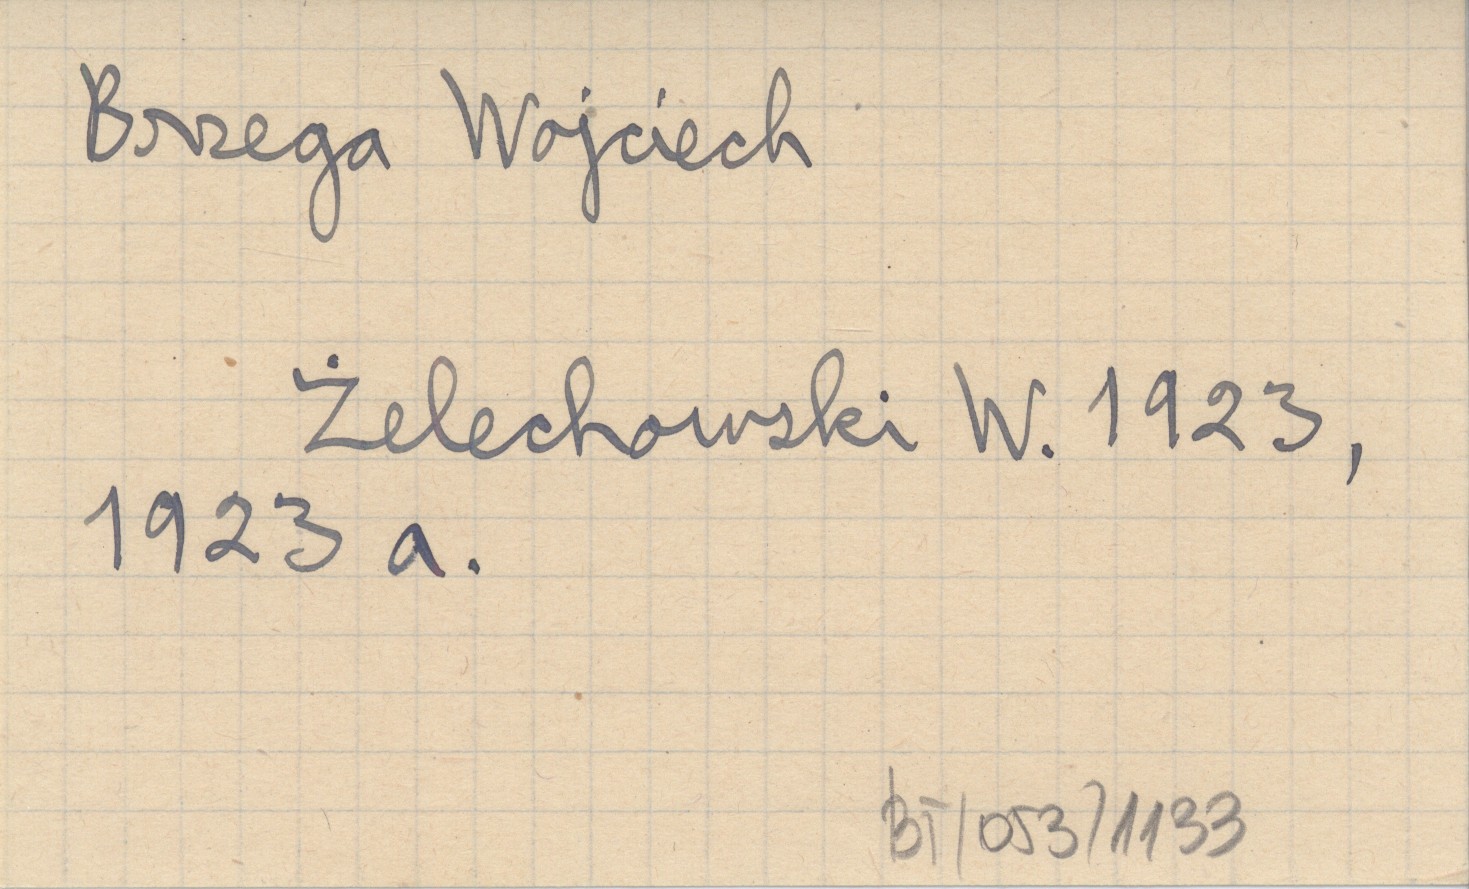 Brzega Wojciech
Żelechowski W. 1923,
1923 a.
BT/053/1133